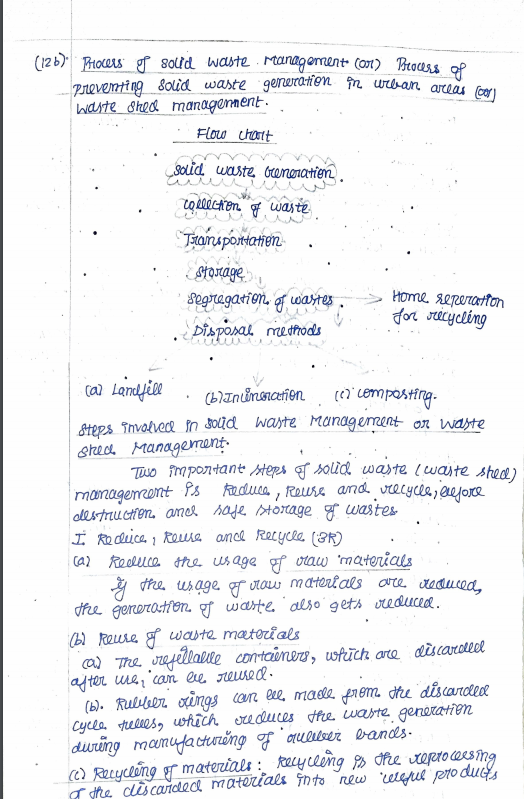 (12b). Process of solid waste management (or) Process of
preventing solid waste generation in urban areas (or)
waste shed management.
Flow chart
solid waste Generation
collection of waste
Transportation
storage
segregation of wastes → Home seperation
for recycling
Disposal methods
(a) Landfill (b) Incineration (c) composting.
steps involved in solid waste management or waste
shed management.
Two important steps of solid waste (waste shed)
management is Reduce, Reuse and recycle, before
destruction and safe storage of wastes
I Reduce, Reuse and Recycle (3R)
(a) Reduce the usage of raw materials
If the usage of raw materials are reduced,
the generation of waste also gets reduced.
(b) Reuse of waste materials
(a) The refillable containers, which are discarded
after use, can be reused.
(b). Rubber rings can be made from the discarded
cycle tubes, which reduces the waste generation
during manufacturing of rubber bands.
(c) Recycling of materials: Recycling is the reprocessing
of the discarded materials into new useful products